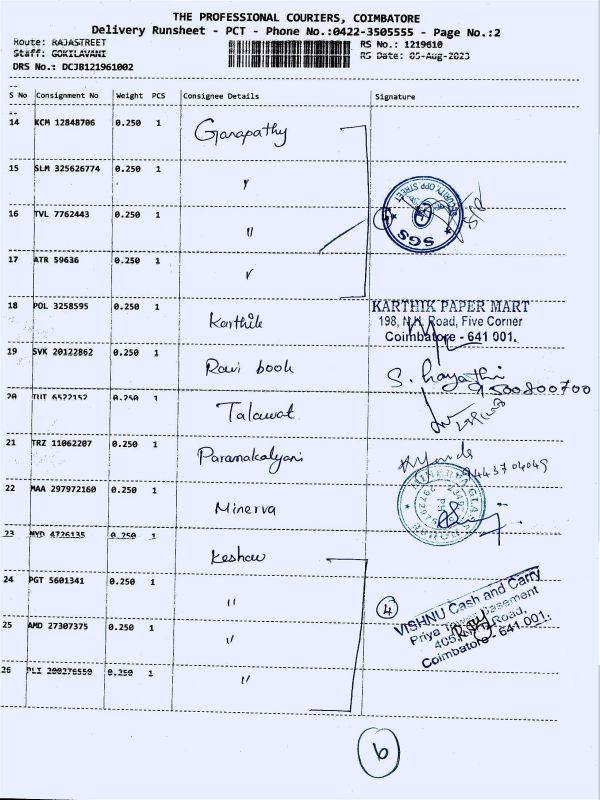 THE PROFESSIONAL COURIERS, COIMBATORE
Delivery Runsheet - PCT - Phone No.:0422-3505555 - Page No.:2
Route: RAJASTREET
RS No.: 1219610
Staff: GOKILAVANI
RS Date: 05-Aug-2023
DRS No.: DCJB121961002
S No Consignment No Weight PCS Consignee Details Signature
14 KCM 12848706 0.250 1 Ganapathy
15 SLM 325626774 0.250 1 "
16 TVL 7762443 0.250 1 "
SECURITY, OPP STREET
SGS
17 ATR 59636 0.250 1 "
18 POL 3258595 0.250 1 Karthik
KARTHIK PAPER MART
198, N.H. Road, Five Corner
Coimbatore - 641 001.
19 SVK 20122862 0.250 1 Ravi book
9500800700
20 TUT 6522152 0.250 1 Talawat
21 TRZ 11062207 0.250 1 Paramakalyani
9443704049
22 MAA 297972160 0.250 1 Minerva
MINERVA GLASS HOUSE
23 MYD 4726135 0.250 1 Keshav
24 PGT 5601341 0.250 1 "
4
VISHNU Cash and Carry
Priya Basement
405, Road,
Coimbatore - 641 001.
25 AMD 27307375 0.250 1 "
26 DLI 200276550 0.250 1 "
6